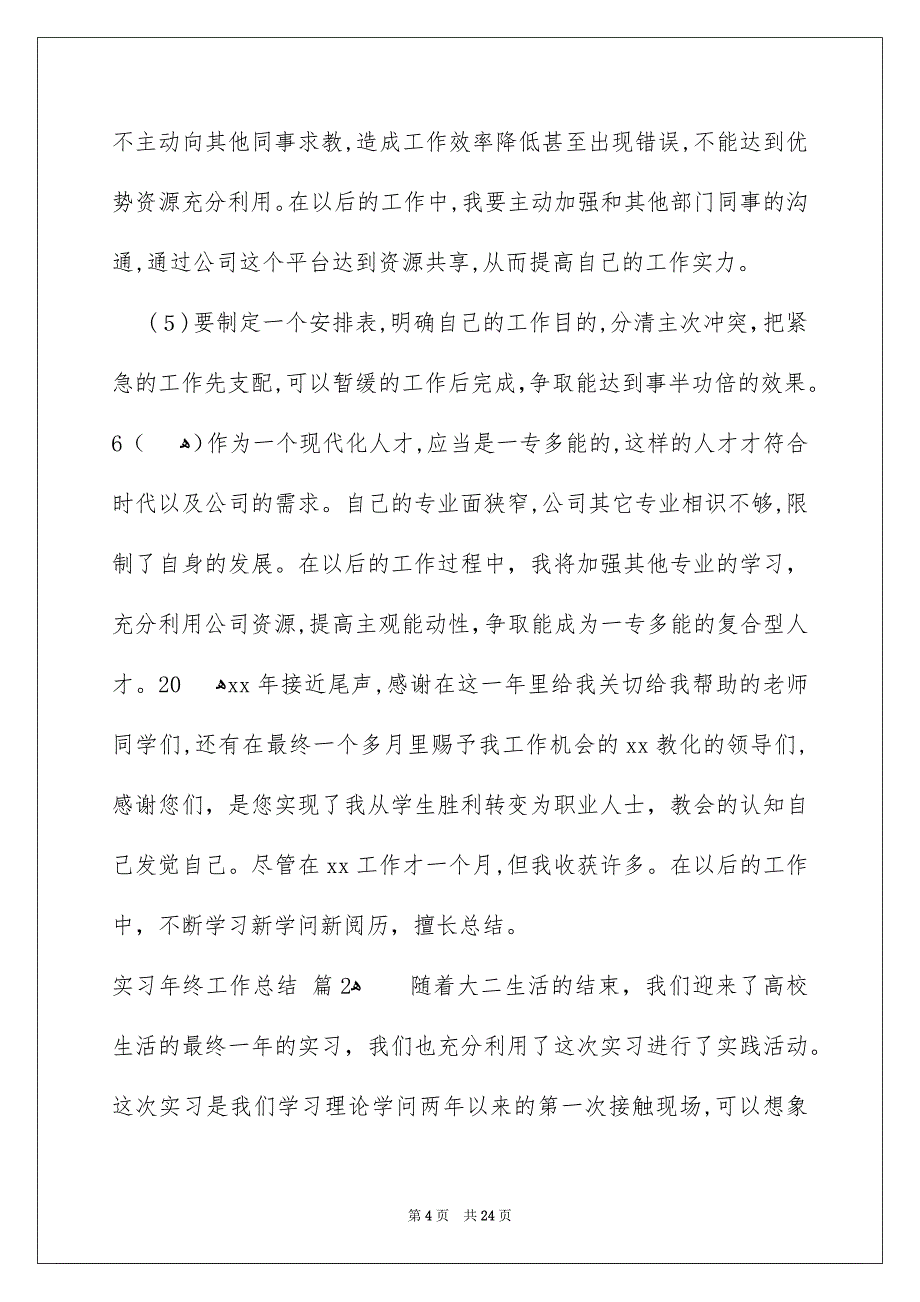 不主动向其他同事求教,造成工作效率降低甚至出现错误,不能达到优
势资源充分利用。在以后的工作中,我要主动加强和其他部门同事的沟
通,通过公司这个平台达到资源共享,从而提高自己的工作实力。
(5)要制定一个安排表,明确自己的工作目的,分清主次冲突，把紧
急的工作先支配,可以暂缓的工作后完成，争取能达到事半功倍的效果。
6（ ﻫ）作为一个现代化人才,应当是一专多能的,这样的人才才符合
时代以及公司的需求。自己的专业面狭窄,公司其它专业相识不够,限
制了自身的发展。在以后的工作过程中，我将加强其他专业的学习，
充分利用公司资源,提高主观能动性，争取能成为一专多能的复合型人
才。20 ﻫxx 年接近尾声,感谢在这一年里给我关切给我帮助的老师
同学们,还有在最终一个多月里赐予我工作机会的 xx 教化的领导们,
感谢您们，是您实现了我从学生胜利转变为职业人士，教会的认知自
己发觉自己。尽管在 xx 工作才一个月,但我收获许多。在以后的工作
中，不断学习新学问新阅历，擅长总结。
实习年终工作总结 篇 2ﻫ 随着大二生活的结束，我们迎来了高校
生活的最终一年的实习，我们也充分利用了这次实习进行了实践活动。
这次实习是我们学习理论学问两年以来的第一次接触现场,可以想象
第 4 页 共 24 页